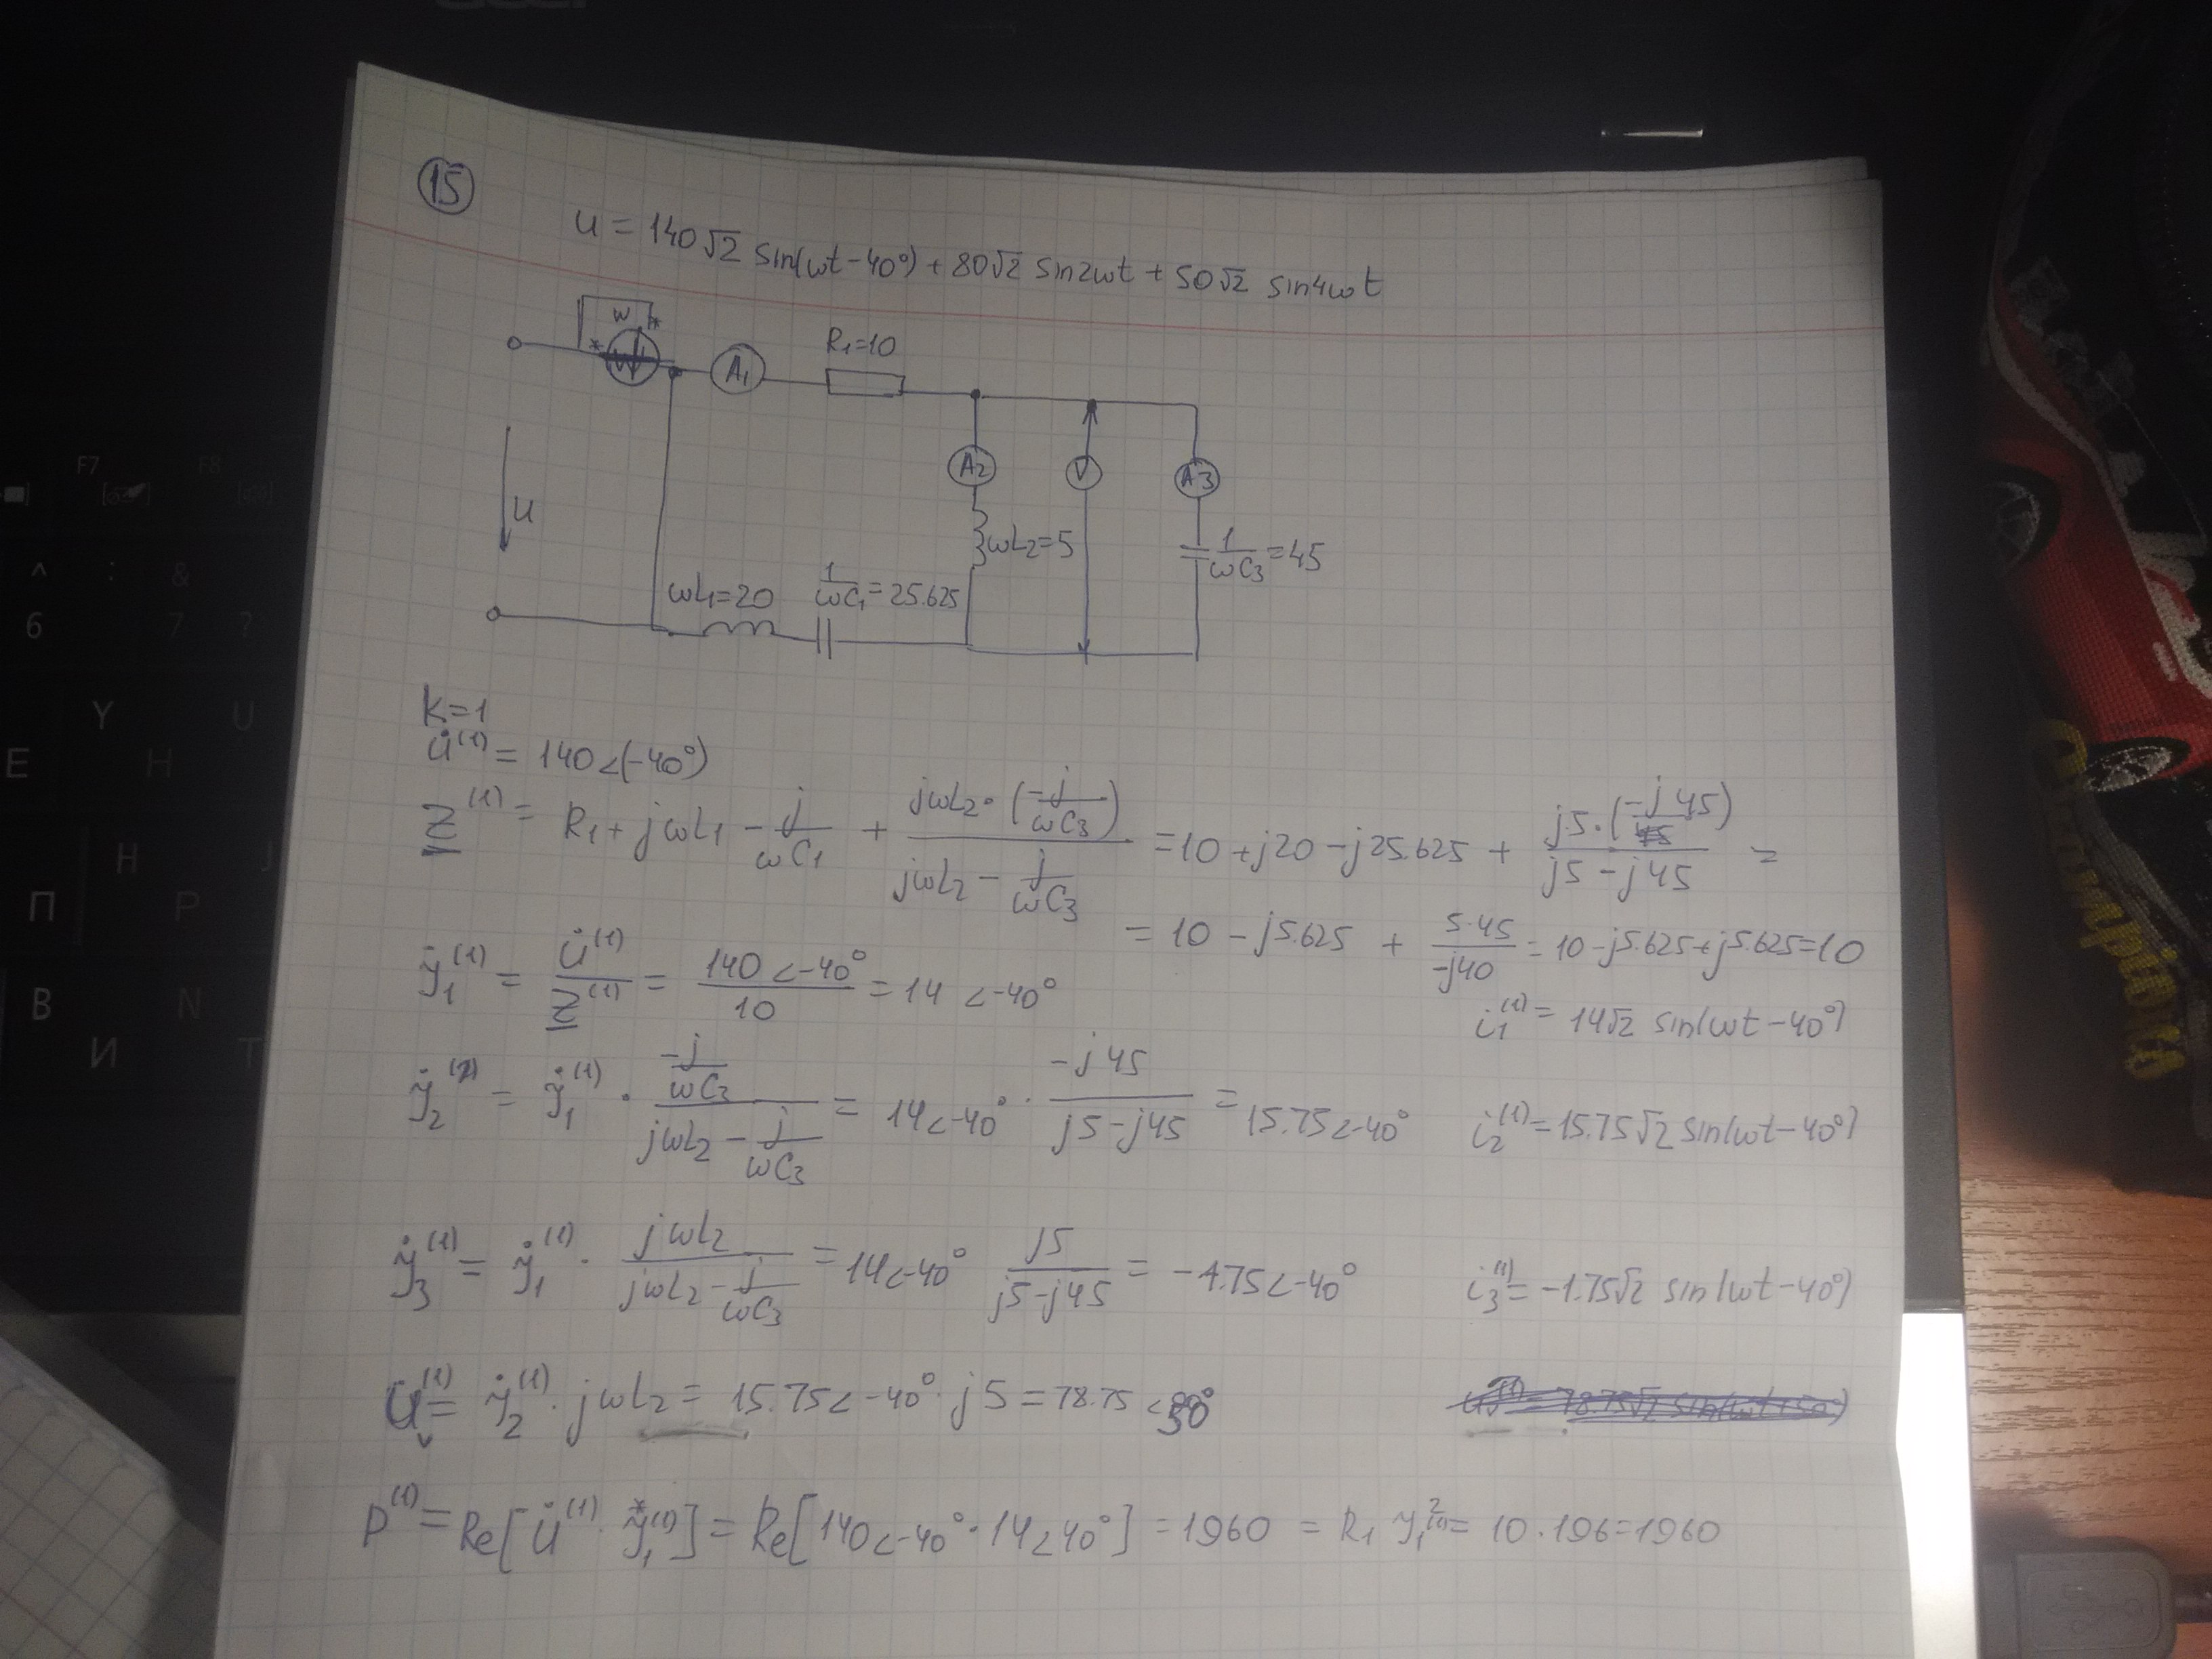 15
u = 140√2 sin(ωt-40°) + 80√2 sin2ωt + 50√2 sin4ωt
W
*
*
A1
R1=10
A2
V
A3
u
ωL2=5
1/ωC3=45
ωL1=20
1/ωC1=25.625
K=1
U̇^(1) = 140∠(-40°)
Z^(1) = R1 + jωL1 - j/ωC1 + (jωL2·(-j/ωC3))/(jωL2 - j/ωC3) = 10 + j20 - j25.625 + (j5·(-j45))/(j5 - j45) =
= 10 - j5.625 + 5·45/-j40 = 10 - j5.625 + j5.625 = 10
İ1^(1) = U̇^(1)/Z^(1) = 140∠-40°/10 = 14∠-40°
i1^(1) = 14√2 sin(ωt-40°)
İ2^(1) = İ1^(1) · (-j/ωC3)/(jωL2 - j/ωC3) = 14∠-40° · -j45/(j5 - j45) = 15.75∠-40°
i2^(1) = 15.75√2 sin(ωt-40°)
İ3^(1) = İ1^(1) · jωL2/(jωL2 - j/ωC3) = 14∠-40° j5/(j5 - j45) = -1.75∠-40°
i3^(1) = -1.75√2 sin(ωt-40°)
U̇v^(1) = İ2^(1) · jωL2 = 15.75∠-40° · j5 = 78.75∠50°
P^(1) = Re[U̇^(1) · İ1*^(1)] = Re[140∠-40° · 14∠40°] = 1960 = R1 I1^2(1) = 10·196 = 1960
F7
F8
^
:
&
6
7
?
Y
U
E
H
Н
П
Р
B
N
И
Т